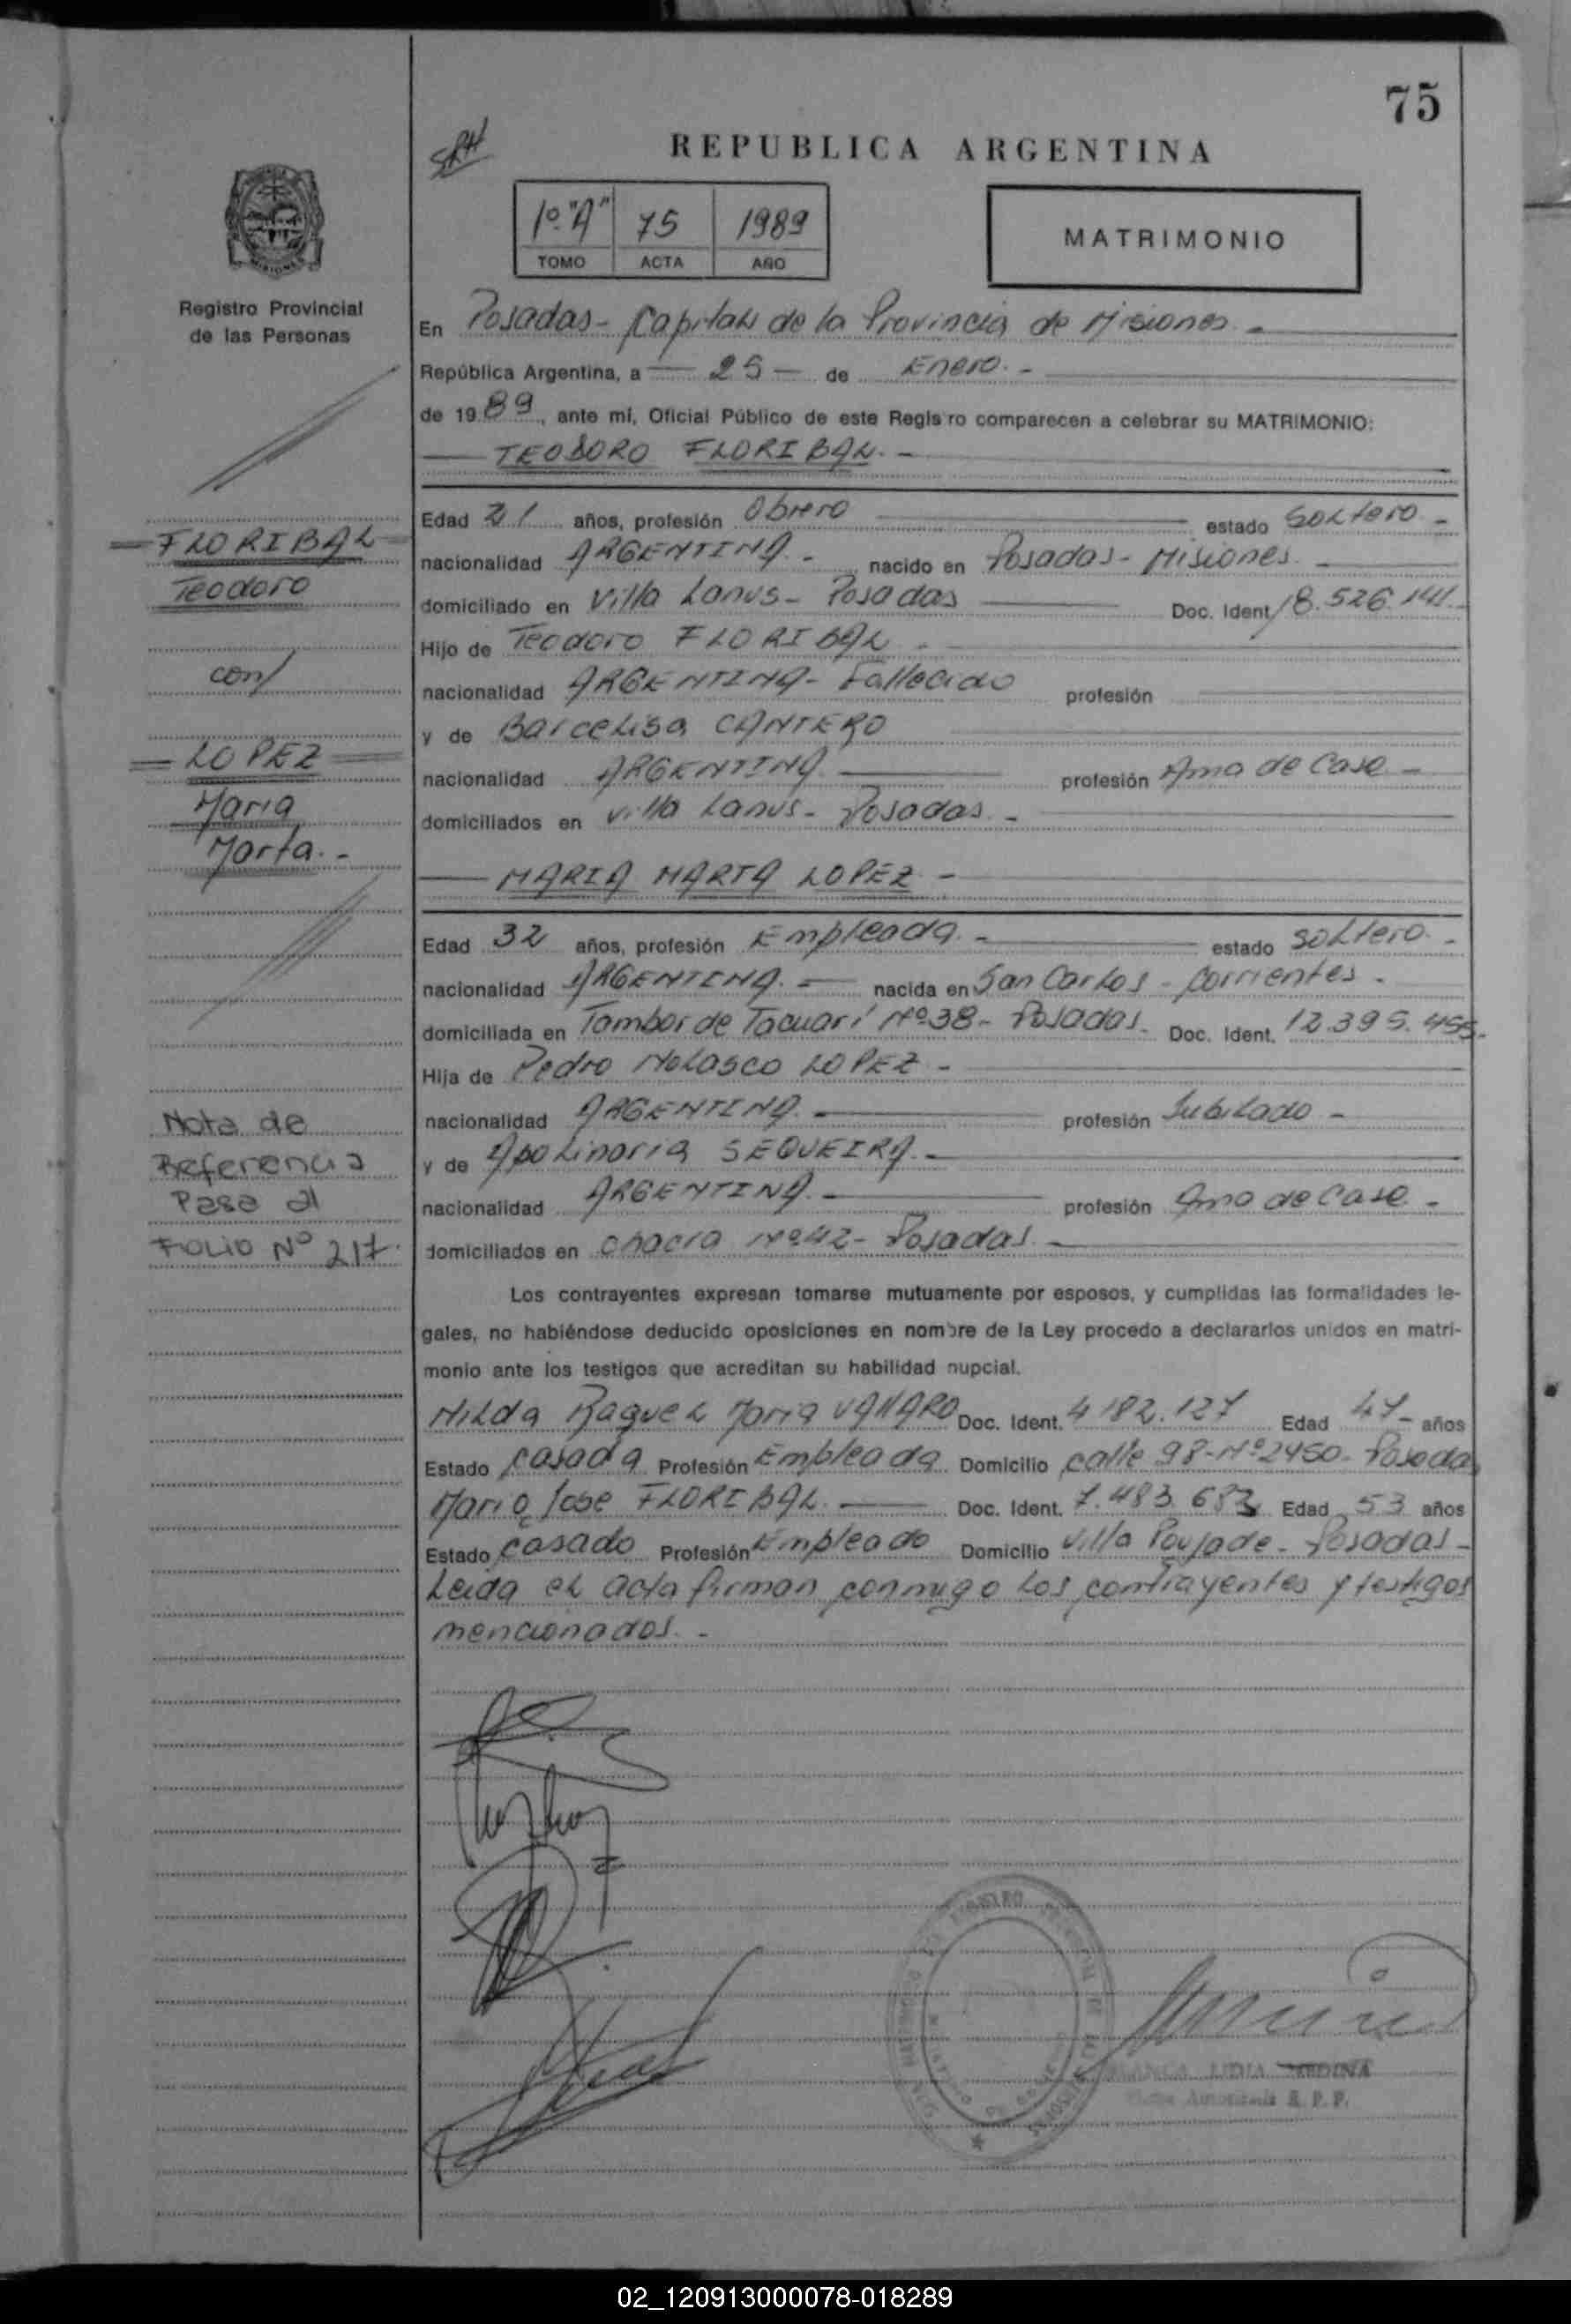 75
SRH
REPUBLICA ARGENTINA
1º "A" 75 1989
TOMO ACTA AÑO
MATRIMONIO
MISIONES
Registro Provincial
de las Personas
En Posadas - Capital de la Provincia de Misiones. -
República Argentina, a 25 - de Enero. -
de 1989, ante mí, Oficial Público de este Registro comparecen a celebrar su MATRIMONIO:
TEODORO FLORIBAL. -
FLORIBAL
Teodoro
con/
LOPEZ
Maria
Marta. -
Edad 21 años, profesión Obrero estado Soltero -
nacionalidad ARGENTINA. - nacido en Posadas - Misiones.
domiciliado en Villa Lanus - Posadas Doc. Ident. 18.526.141.
Hijo de Teodoro FLORIBAL -
nacionalidad ARGENTINA - Fallecido profesión
y de Barcelisa CANTERO
nacionalidad ARGENTINA profesión Ama de Casa -
domiciliados en Villa Lanus - Posadas. -
MARIA MARTA LOPEZ -
Edad 32 años, profesión Empleada. - estado soltero. -
nacionalidad ARGENTINA. - nacida en San Carlos - Corrientes -
domiciliada en Tambor de Tacuarí Nº 38 - Posadas. Doc. Ident. 12.395.455.-
Hija de Pedro Nolasco LOPEZ -
nacionalidad ARGENTINA. profesión Jubilado -
y de Apolinaria SEQUEIRA. -
nacionalidad ARGENTINA. profesión Ama de Casa. -
domiciliados en Chacra Nº 42 - Posadas.
Nota de
Referencia
Pasa al
FOLIO Nº 217.
Los contrayentes expresan tomarse mutuamente por esposos, y cumplidas las formalidades le-
gales, no habiéndose deducido oposiciones en nombre de la Ley procedo a declararlos unidos en matri-
monio ante los testigos que acreditan su habilidad nupcial.
Nilda Raquel Maria VANARO Doc. Ident. 4.182.127 Edad 47 - años
Estado Casada Profesión Empleada Domicilio calle 98 - Nº 2450 - Posadas
Mario Jose FLORIBAL. Doc. Ident. 7.483.683 Edad 53 años
Estado Casado Profesión Empleado Domicilio Villa Poujade - Posadas -
Leida el acta firman conmigo los contrayentes y testigos
mencionados. -
BLANCA LIDIA MEDINA
R. P. P.
02_120913000078-018289